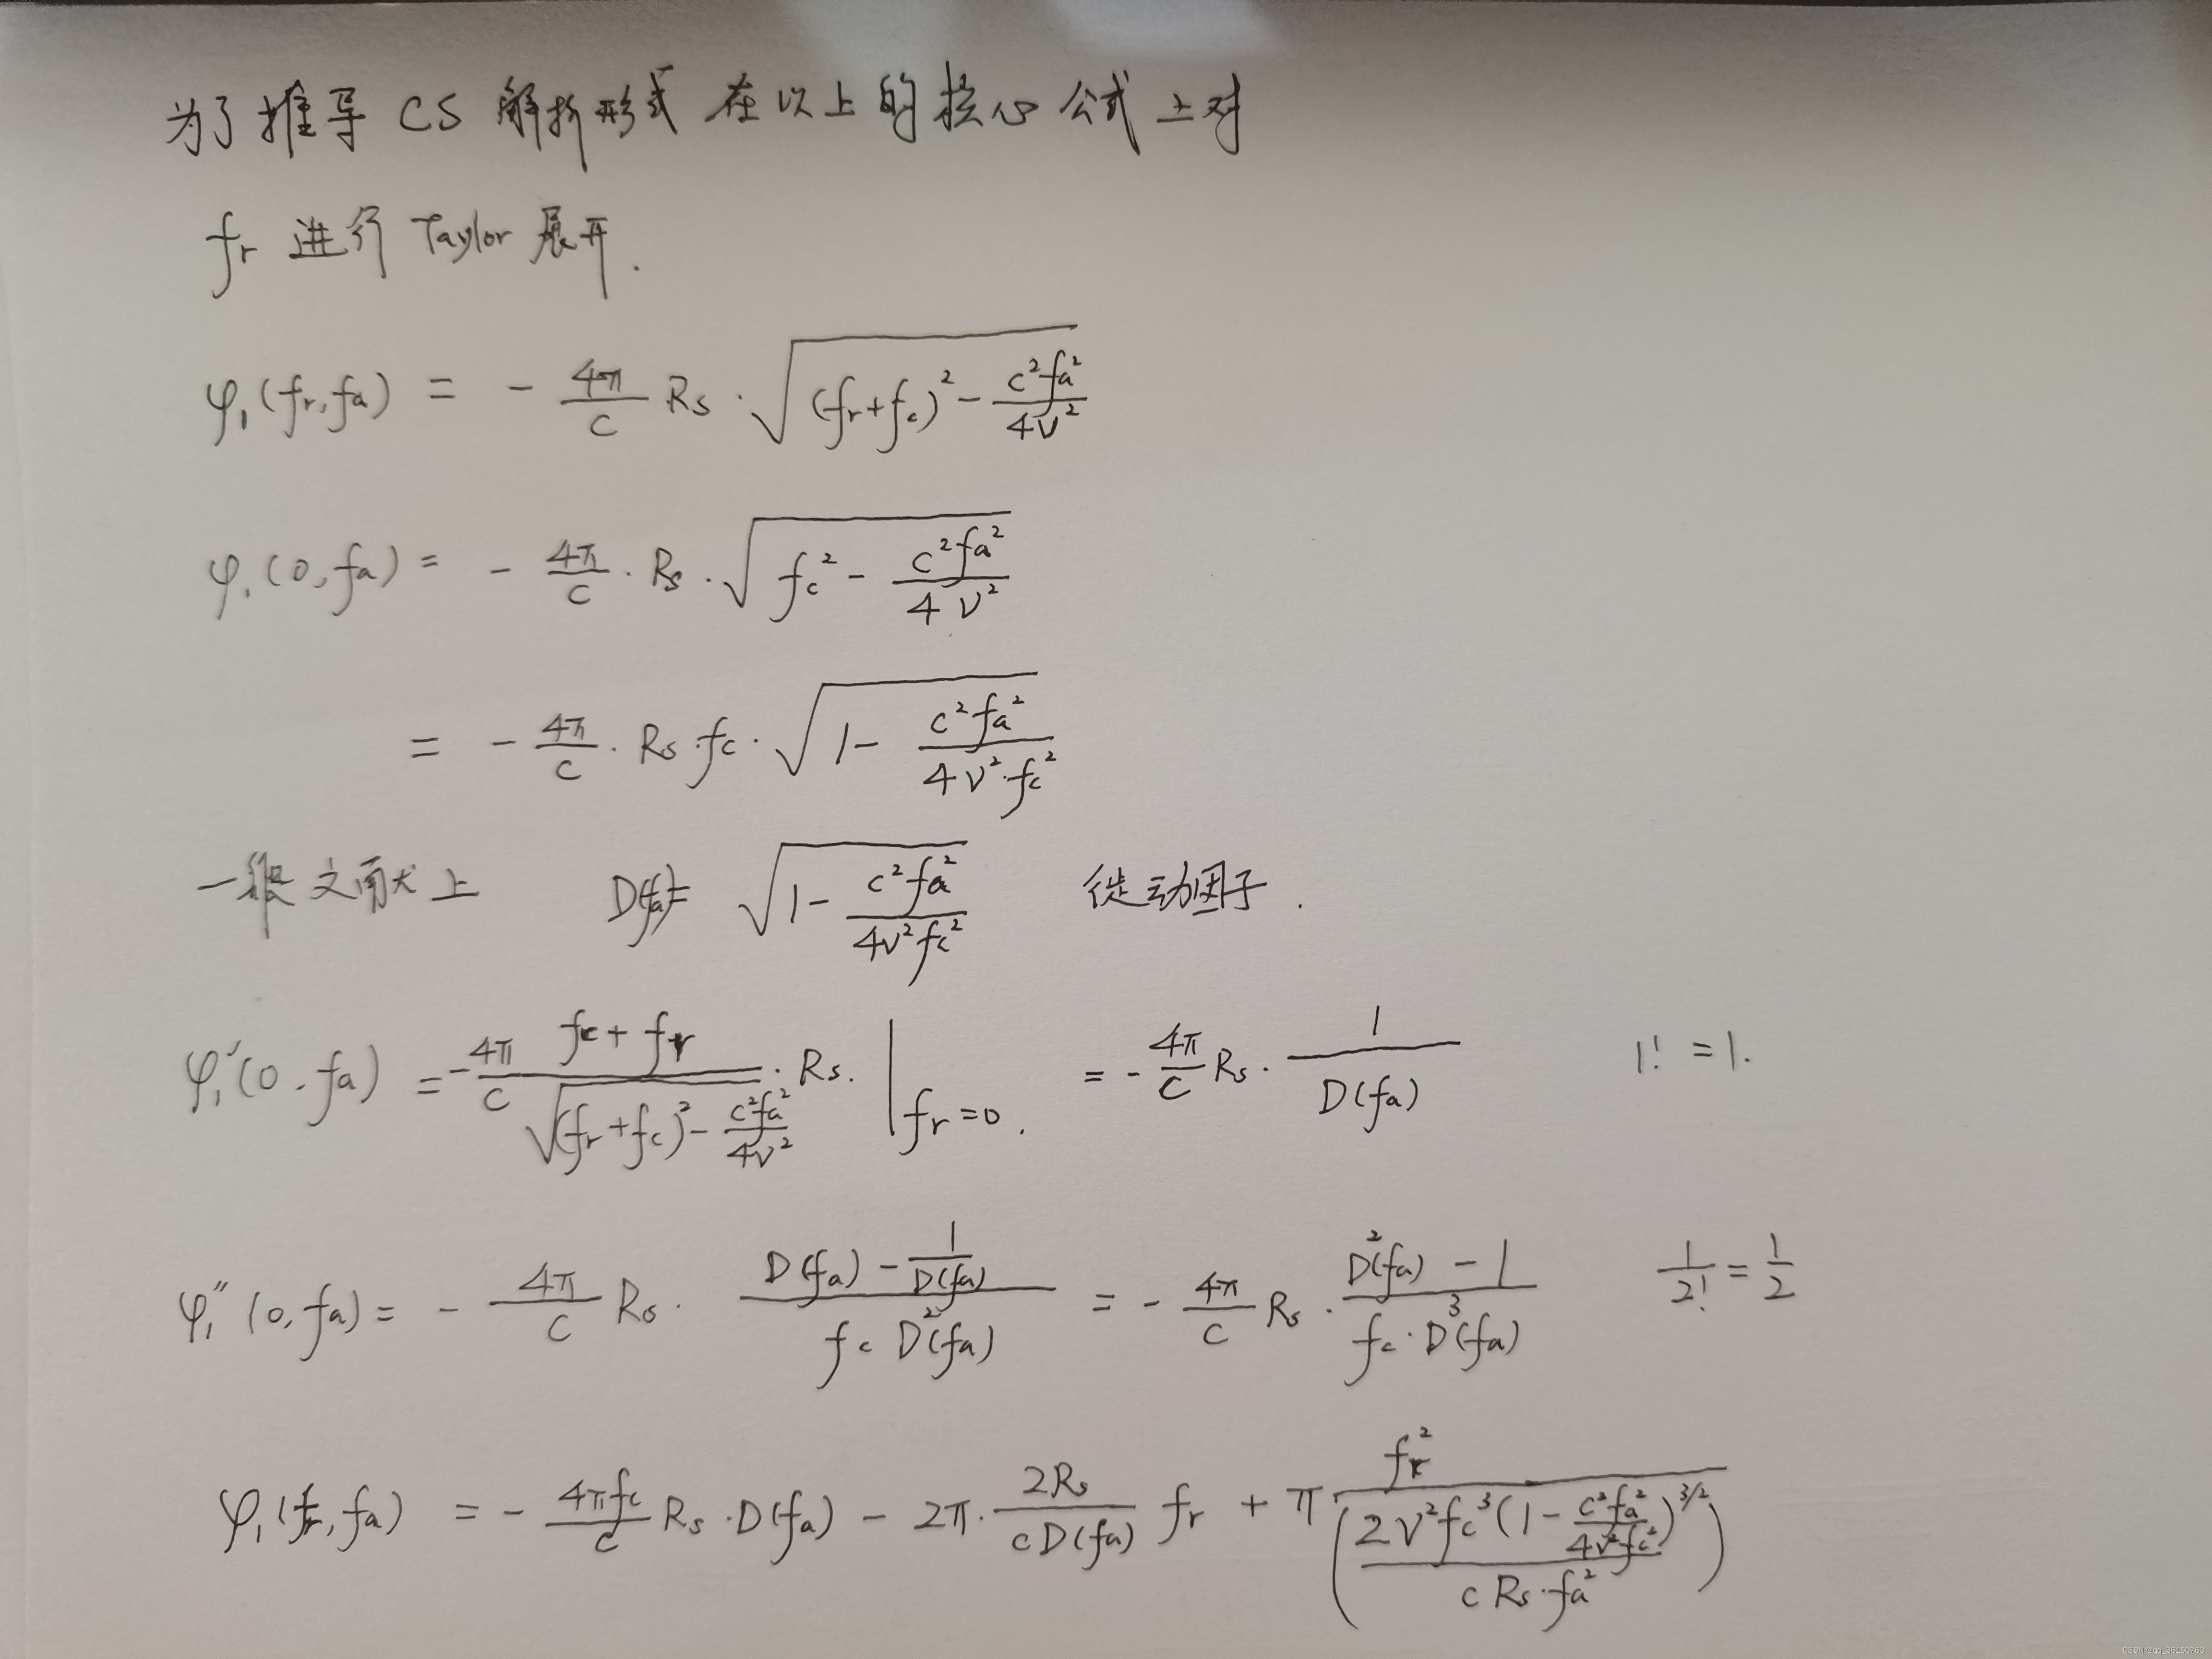 为了推导 CS 解析形式 在以上的核心公式上对
fr 进行 Taylor 展开.
φ₁(fr, fa) = - \frac{4π}{C} Rs · \sqrt{(fr+fc)^2 - \frac{c^2 fa^2}{4V^2}}
φ₁(0, fa) = - \frac{4π}{C} · Rs · \sqrt{fc^2 - \frac{c^2 fa^2}{4V^2}}
= - \frac{4π}{C} · Rs · fc · \sqrt{1 - \frac{c^2 fa^2}{4V^2 · fc^2}}
一般文献上 D(fa) = \sqrt{1 - \frac{c^2 fa^2}{4V^2 fc^2}} 徙动因子.
φ₁'(0, fa) = -\frac{4π}{C} \frac{fc + fr}{\sqrt{(fr+fc)^2 - \frac{c^2 fa^2}{4V^2}}} · Rs. |_{fr=0.} = - \frac{4π}{C} Rs · \frac{1}{D(fa)} 1! = 1.
φ₁''(0, fa) = - \frac{4π}{C} Rs · \frac{D(fa) - \frac{1}{D(fa)}}{fc D^2(fa)} = - \frac{4π}{C} Rs · \frac{D^2(fa) - 1}{fc · D^3(fa)} \frac{1}{2!} = \frac{1}{2}
φ₁(fr, fa) = - \frac{4πfc}{C} Rs · D(fa) - 2π · \frac{2Rs}{cD(fa)} fr + π \frac{fr^2}{(\frac{2V^2 fc^3 (1 - \frac{c^2 fa^2}{4V^2 fc^2})^{3/2}}{c Rs · fa^2})}